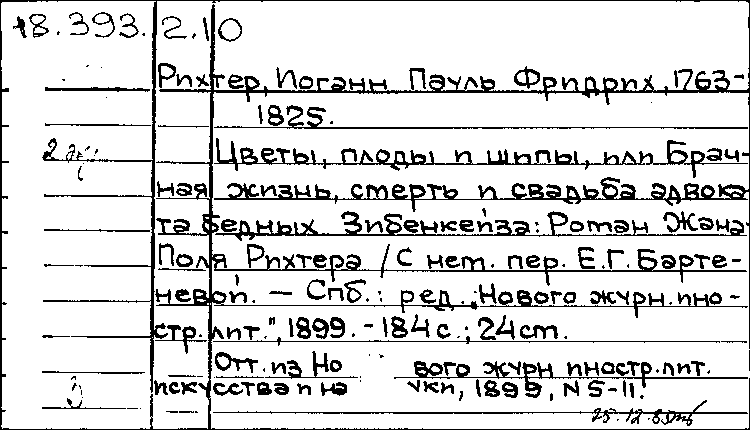 18.393.2.10
Рихтер, Иоганн Пауль Фридрих, 1763-
1825.
2 экз
Цветы, плоды и шипы, или Брач-
ная жизнь, смерть и свадьба адвока-
та бедных Зибенкейза: Роман Жана-
Поля Рихтера / С нем. пер. Е.Г. Барте-
невой. — Спб.: ред. „Нового журн. ино-
стр. лит.", 1899. - 184 с.; 24 см.
Отт. из Но вого журн иностр. лит.
искусства и на уки, 1899, N 5-11.
3
25.12.85